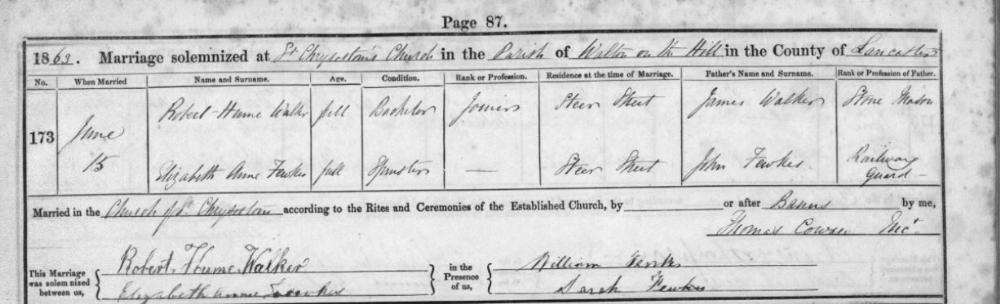 Page 87.
1863. Marriage solemnized at St Chrysostom's Church in the Parish of Walton on the Hill in the County of Lancaster
No. When Married Name and Surname. Age. Condition. Rank or Profession. Residence at the time of Marriage. Father's Name and Surname. Rank or Profession of Father.
173 June 15
Robert Hume Walker full Bachelor Joiner Steer Street James Walker Stone Mason
Elizabeth Anne Fewkes full Spinster — Steer Street John Fewkes Railway Guard
Married in the Church of St. Chrysostom according to the Rites and Ceremonies of the Established Church, by or after Banns by me,
Thomas Cowan
This Marriage was solemnized between us,
Robert Hume Walker
Elizabeth Anne Fewkes
in the Presence of us,
William
Sarah Fewkes